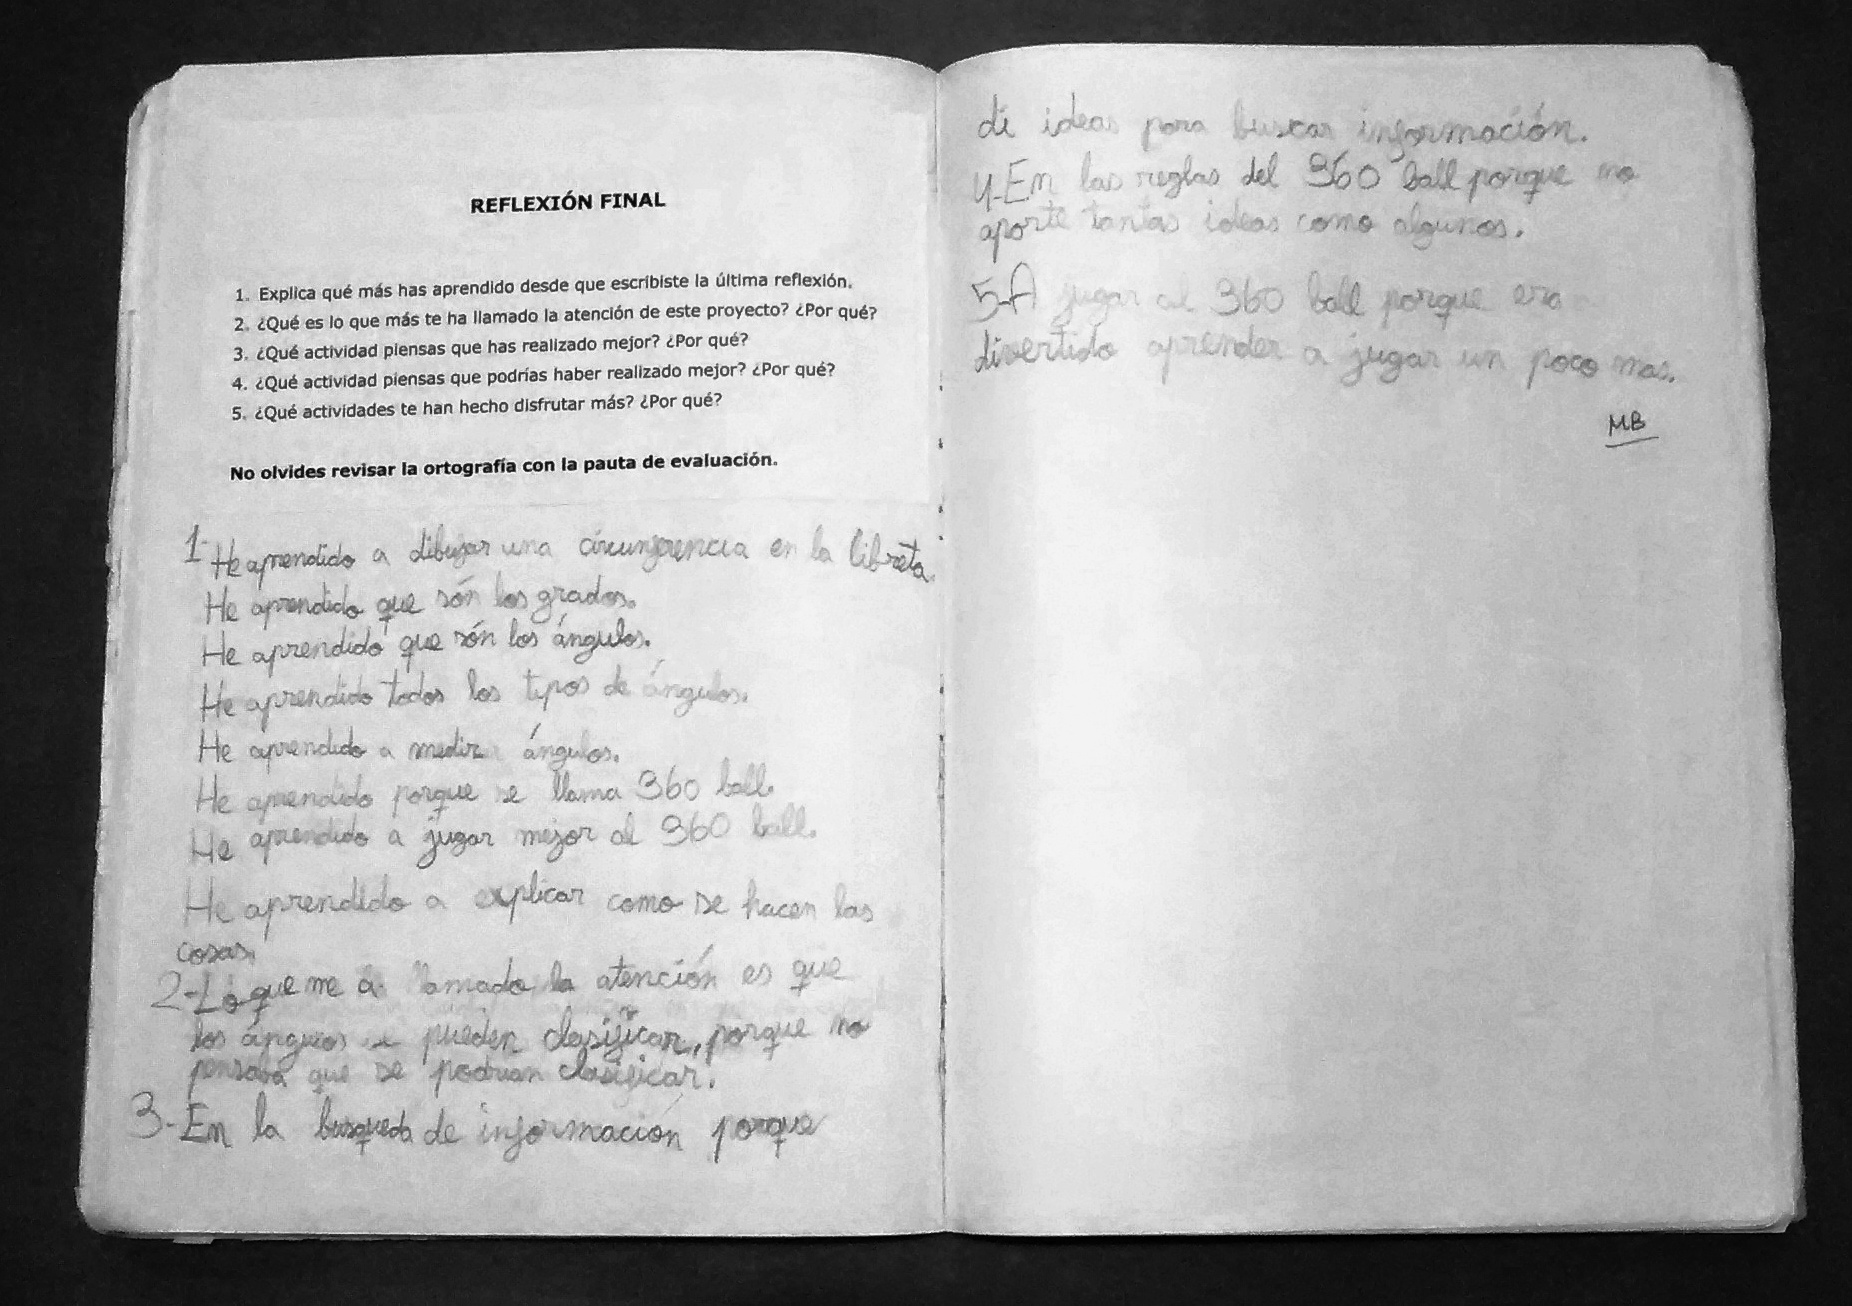 REFLEXIÓN FINAL
1. Explica qué más has aprendido desde que escribiste la última reflexión.
2. ¿Qué es lo que más te ha llamado la atención de este proyecto? ¿Por qué?
3. ¿Qué actividad piensas que has realizado mejor? ¿Por qué?
4. ¿Qué actividad piensas que podrías haber realizado mejor? ¿Por qué?
5. ¿Qué actividades te han hecho disfrutar más? ¿Por qué?
No olvides revisar la ortografía con la pauta de evaluación.
1- He aprendido a dibujar una circunferencia en la libreta.
He aprendido que són los grados.
He aprendido que són los ángulos.
He aprendido todos los tipos de ángulos.
He aprendido a medir ángulos.
He aprendido porque se llama 360 ball.
He aprendido a jugar mejor al 360 ball.
He aprendido a explicar como se hacen las
cosas.
2-Lo que me a llamado la atención es que
los ángulos se pueden clasificar, porque no
pensaba que se podrían clasificar.
3-En la busqueda de información porque
di ideas para buscar información.
4-En las reglas del 360 ball porque no
aporte tantas ideas como algunos.
5-A jugar al 360 ball porque era
divertido aprender a jugar un poco mas.
MB